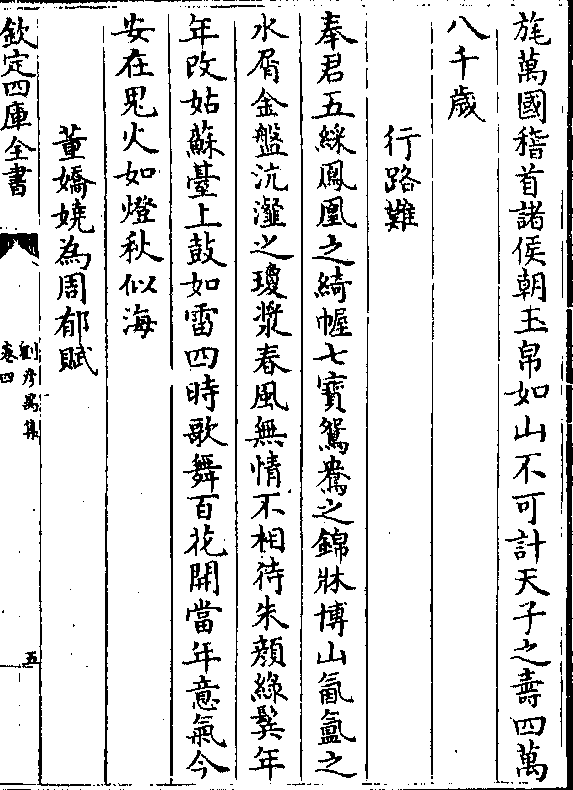 旄萬國稽首諸侯朝玉帛如山不可計天子之壽四萬
八千歲
行路難
奉君五綵鳳凰之綺幄七寶鴛鴦之錦牀博山氤氳之
水屑金盤沆瀣之瓊漿春風無情不相待朱顔綠鬓年
年改姑蘇臺上鼓如雷四時歌舞百花開當年意氣今
安在鬼火如燈秋似海
董嬌嬈為周郁賦
欽定四庫全書
劉彦昺集
卷四
五